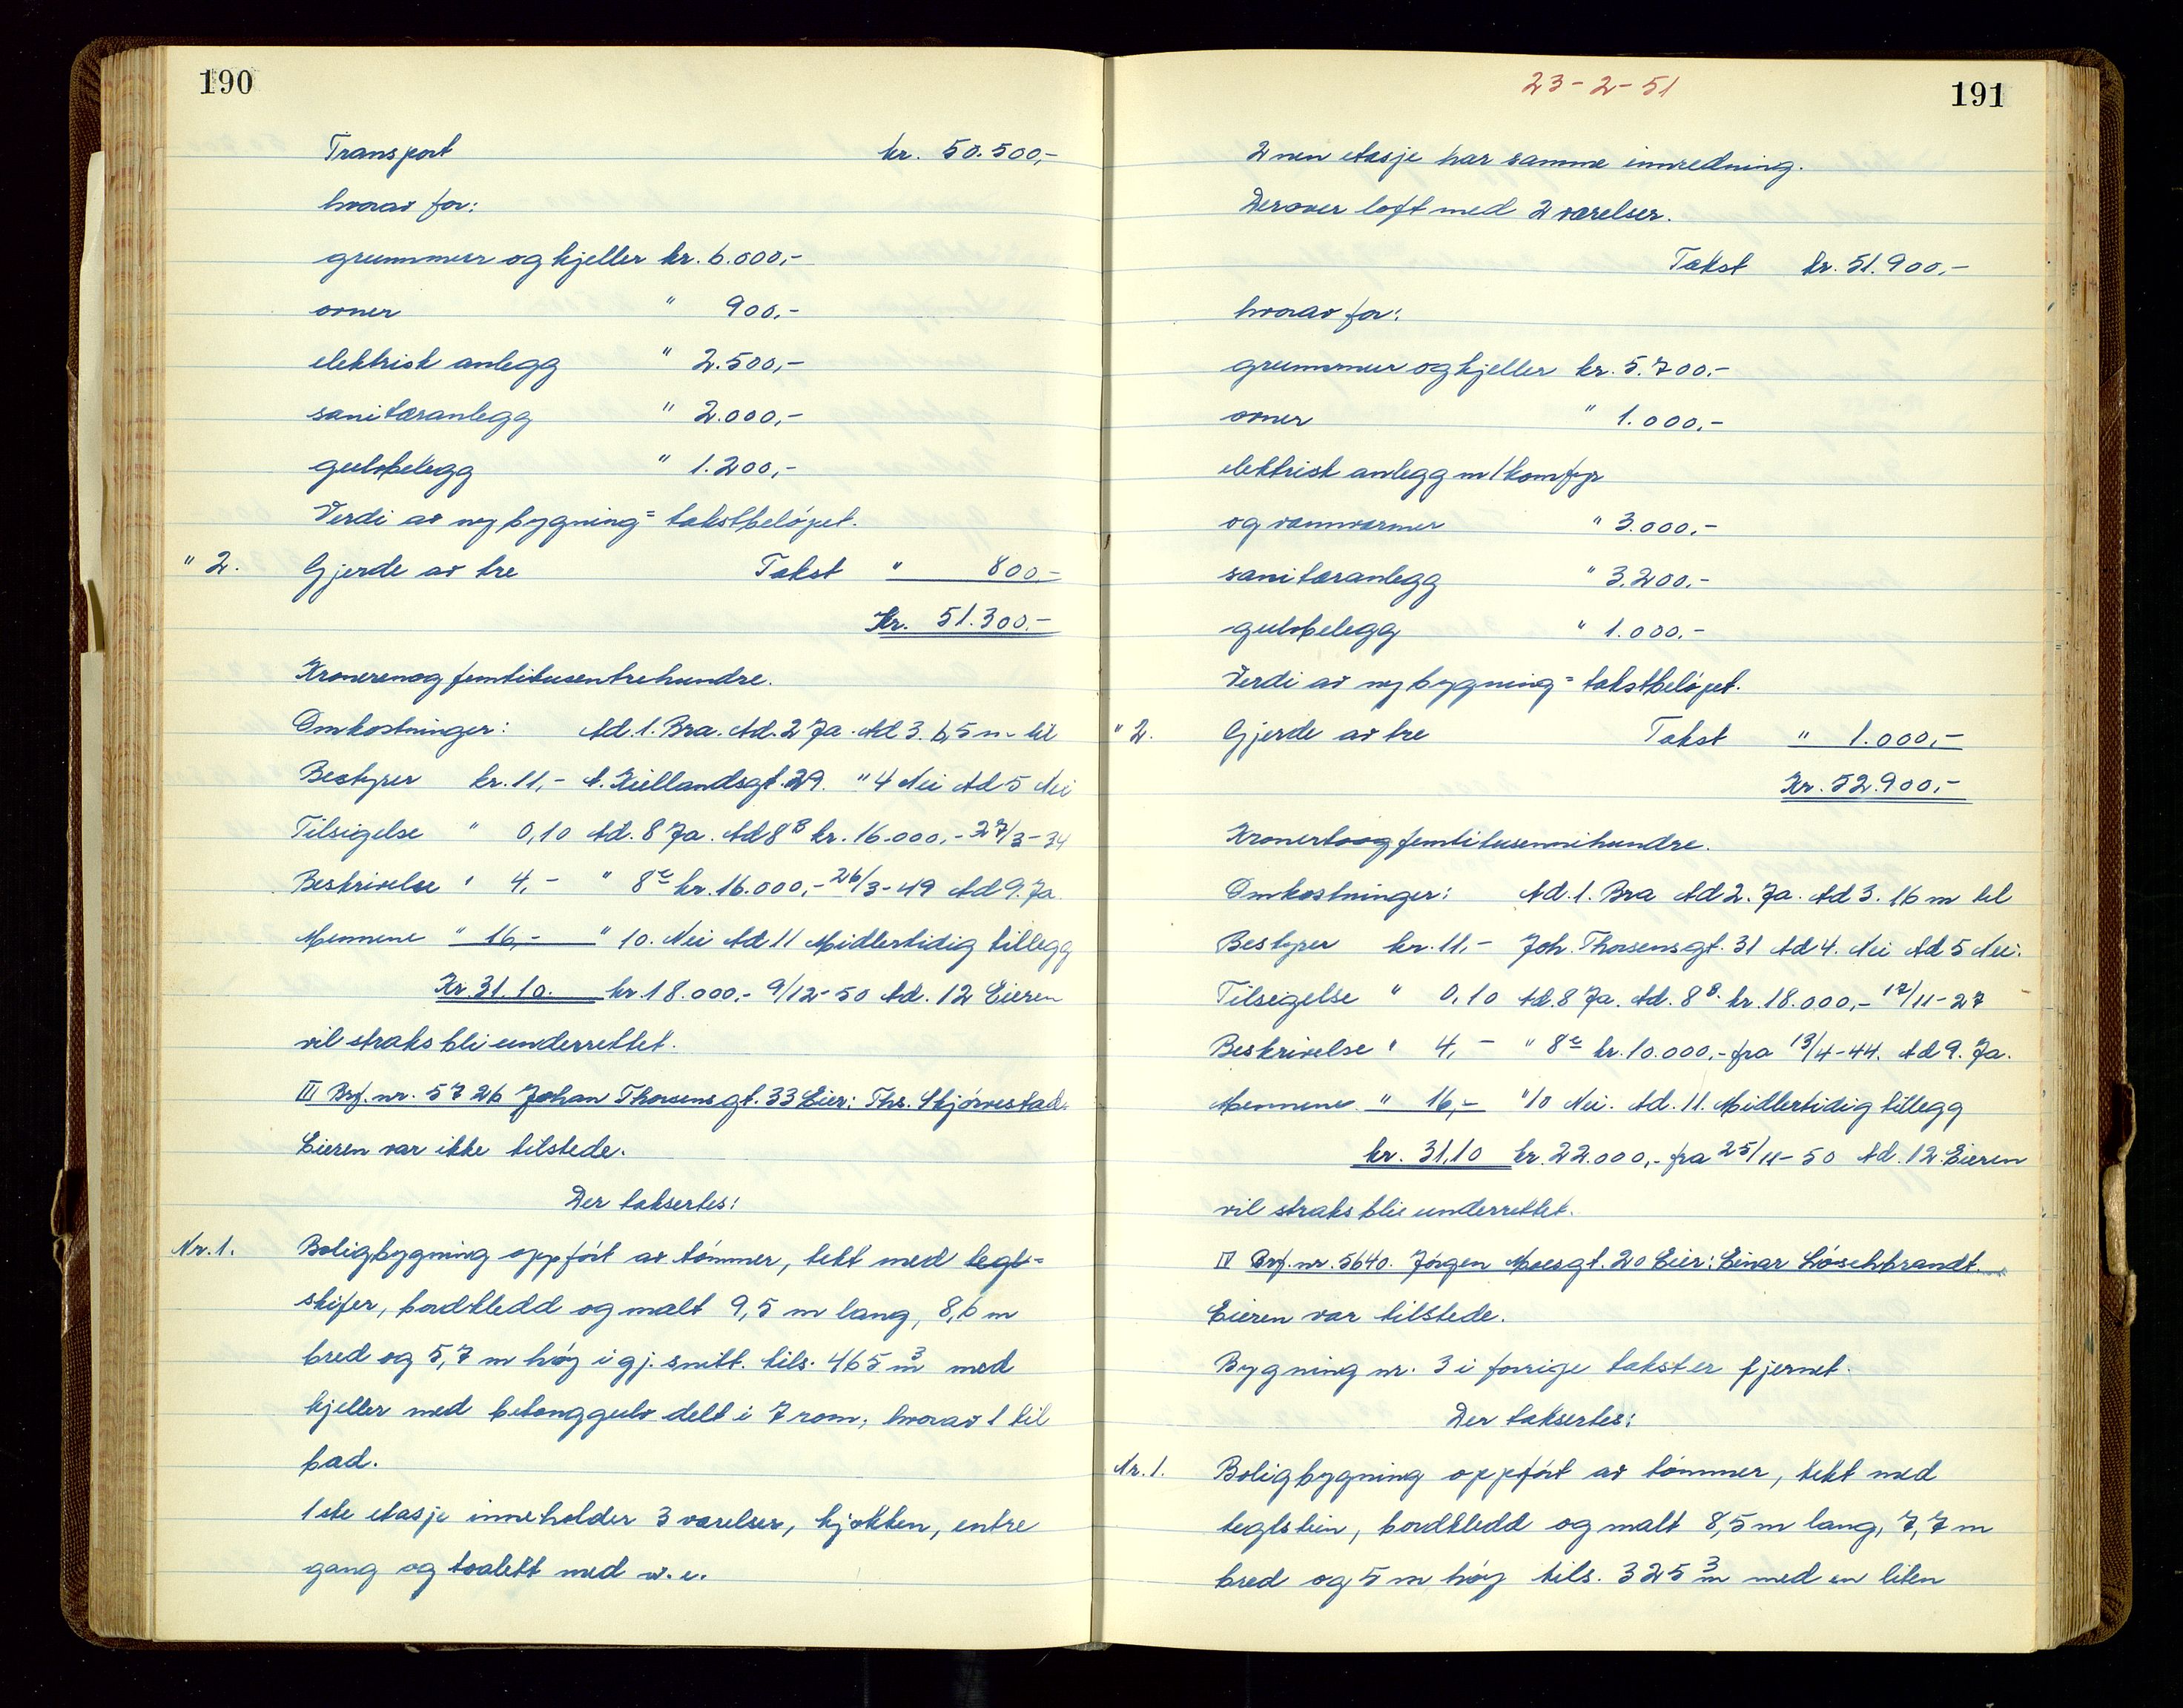 190
Transport kr. 50.500,-
hvorav for:
grunnmur og kjeller kr. 6.000,-
ovner " 900,-
elektrisk anlegg " 2.500,-
sanitæranlegg " 2.000,-
gulvbelegg " 1.200,-
Verdi av ny bygning = takstbeløpet.
" 2. Gjerde av tre Takst " 800,-
Kr. 51.300.-
Kronerenogfemtitusentrehundre.
Omkostninger: Ad. 1. Bra. Ad. 2 Ja. Ad 3. 6,5 m. til
Bestyrer kr. 11,- A. Kiellandsgt. 29. " 4 Nei Ad 5 Nei
Tilsigelse " 0,10 Ad. 8 Ja. Ad 8 B kr. 16.000,- 27/3-34
Beskrivelse " 4,- " 8 c kr. 16.000,- 26/3-49 Ad 9. Ja.
Mennene " 16,- " 10. Nei Ad 11 Midlertidig tillegg
Kr. 31.10. kr. 18.000,- 9/12-50 Ad. 12 Eieren
vil straks bli underrettet.
III Brf. nr. 5726 Johan Thorsensgt. 33 Eier: Ths. Skjörvestad.
Eieren var ikke tilstede.
Der taksertes:
Nr. 1. Boligbygning oppfört av tömmer, tekt med tegl-
skifer, bordkledd og malt 9,5 m lang, 8,6 m
bred og 5,7 m höy i gj. snitt. tils. 465 m³ med
kjeller med betonggulv delt i 7 rom, hvorav 1 til
bad.
1ste etasje inneholder 3 værelser, kjøkken, entre
gang og toalett med w.c.
23-2-51
191
2nen etasje har samme innredning.
Derover loft med 2 værelser.
Takst kr. 51.900,-
hvorav for:
grunnmur og kjeller kr. 5.700.-
ovner " 1.000,-
elektrisk anlegg m/komfyr
og vannvarmer " 3.000,-
sanitæranlegg " 3.200,-
gulvbelegg " 1.000,-
Verdi av ny bygning = takstbeløpet.
" 2. Gjerde av tre Takst " 1.000,-
Kr. 52.900,-
Kronertoogfemtitusennihundre.
Omkostninger: Ad. 1. Bra Ad 2. Ja. Ad 3. 16 m til
Bestyrer kr. 11,- Joh. Thorsensgt. 31 Ad 4. Nei Ad 5 Nei.
Tilsigelse " 0,10 Ad. 8 Ja. Ad. 8 B. kr. 18.000,- 17/11-27
Beskrivelse " 4,- " 8 c kr. 10.000,- fra 13/4-44. Ad 9. Ja.
Mennene " 16,- " 10 Nei. Ad. 11. Midlertidig tillegg
kr. 31,10 kr. 22.000,- fra 25/11-50 Ad. 12. Eieren
vil straks bli underrettet.
IV Brf. nr. 5640. Jörgen Moesgt. 20 Eier: Einar Löschbrandt.
Eieren var tilstede.
Bygning nr. 3 i forrige takst er fjernet.
Der taksertes:
Nr. 1. Boligbygning oppfört av tömmer, tekt med
teglstein, bordkledd og malt 8,5 m lang, 7,7 m
bred og 5 m höy tils. 325 m³ med en liten